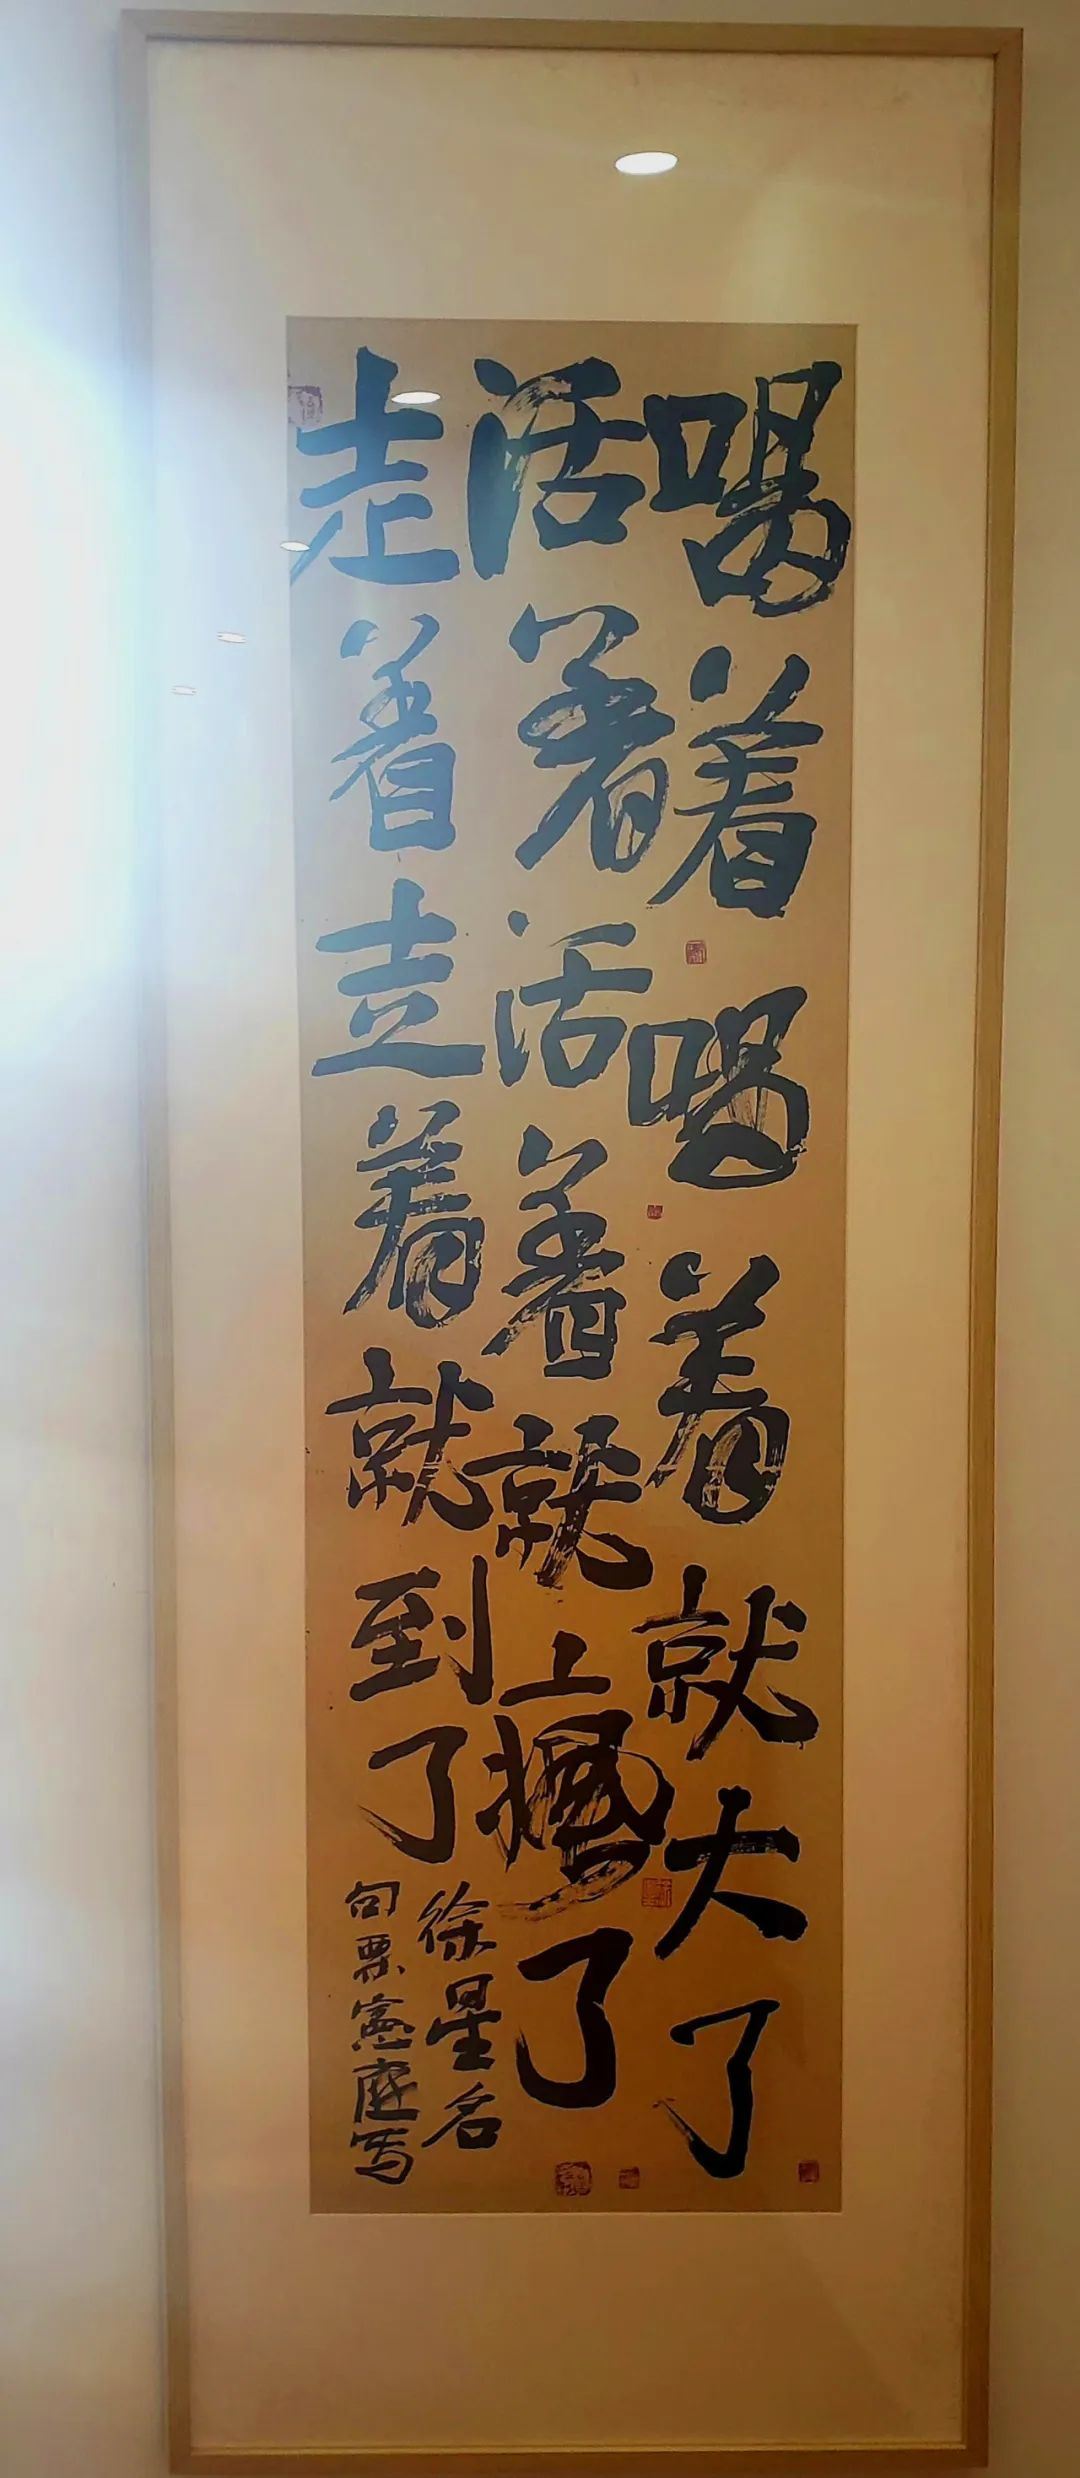 喝着喝着就大了
活着活着就上撼了
走着走着就到了
徐星名
句栗宪庭写